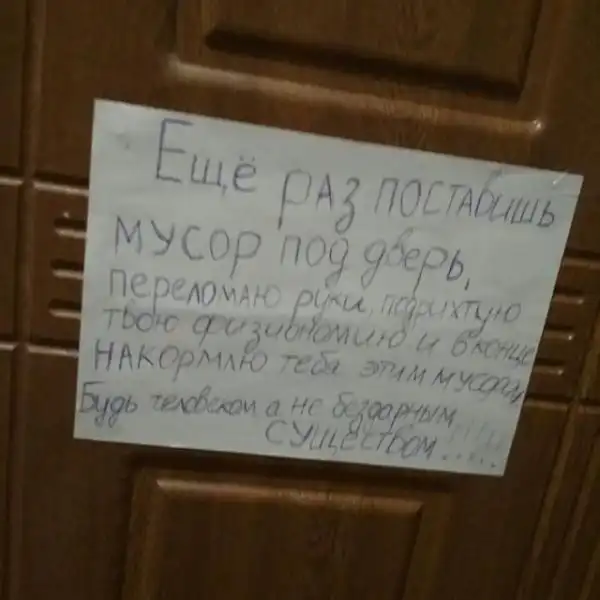 Ещё раз поставишь
мусор под дверь,
переломаю руки, подрихтую
твою физиономию и в конце
накормлю тебя этим мусором
Будь человеком а не бездарным
существом......